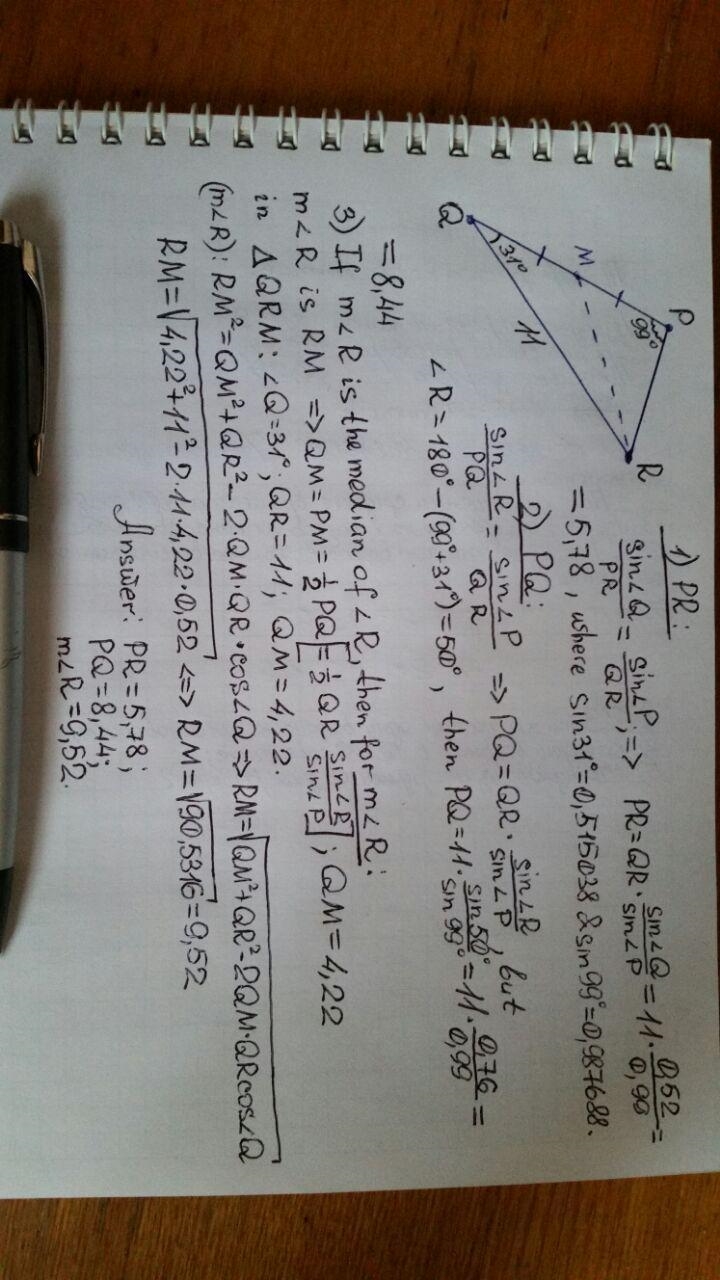 P
99°
M
31°
Q
11
R
1) PR:
sin∠Q/PR = sin∠P/QR; => PR = QR · sin∠Q/sin∠P = 11 · 0,52/0,99 =
= 5,78, where sin31° = 0,515038 & sin99° = 0,987688.
2) PQ:
sin∠R/PQ = sin∠P/QR => PQ = QR · sin∠R/sin∠P, but
∠R = 180° - (99° + 31°) = 50°, then PQ = 11 · sin50°/sin99° = 11 · 0,76/0,99 =
= 8,44
3) If m∠R is the median of ∠R, then for m∠R:
m∠R is RM => QM = PM = 1/2 PQ [= 1/2 QR sin∠R/sin∠P]; QM = 4,22
in △QRM: ∠Q = 31°; QR = 11; QM = 4,22.
(m∠R): RM² = QM² + QR² - 2·QM·QR·cos∠Q => RM = √(QM² + QR² - 2QM·QRcos∠Q)
RM = √(4,22² + 11² - 2·11·4,22·0,52) <=> RM = √90,5316 = 9,52
Answer: PR = 5,78;
PQ = 8,44;
m∠R = 9,52.